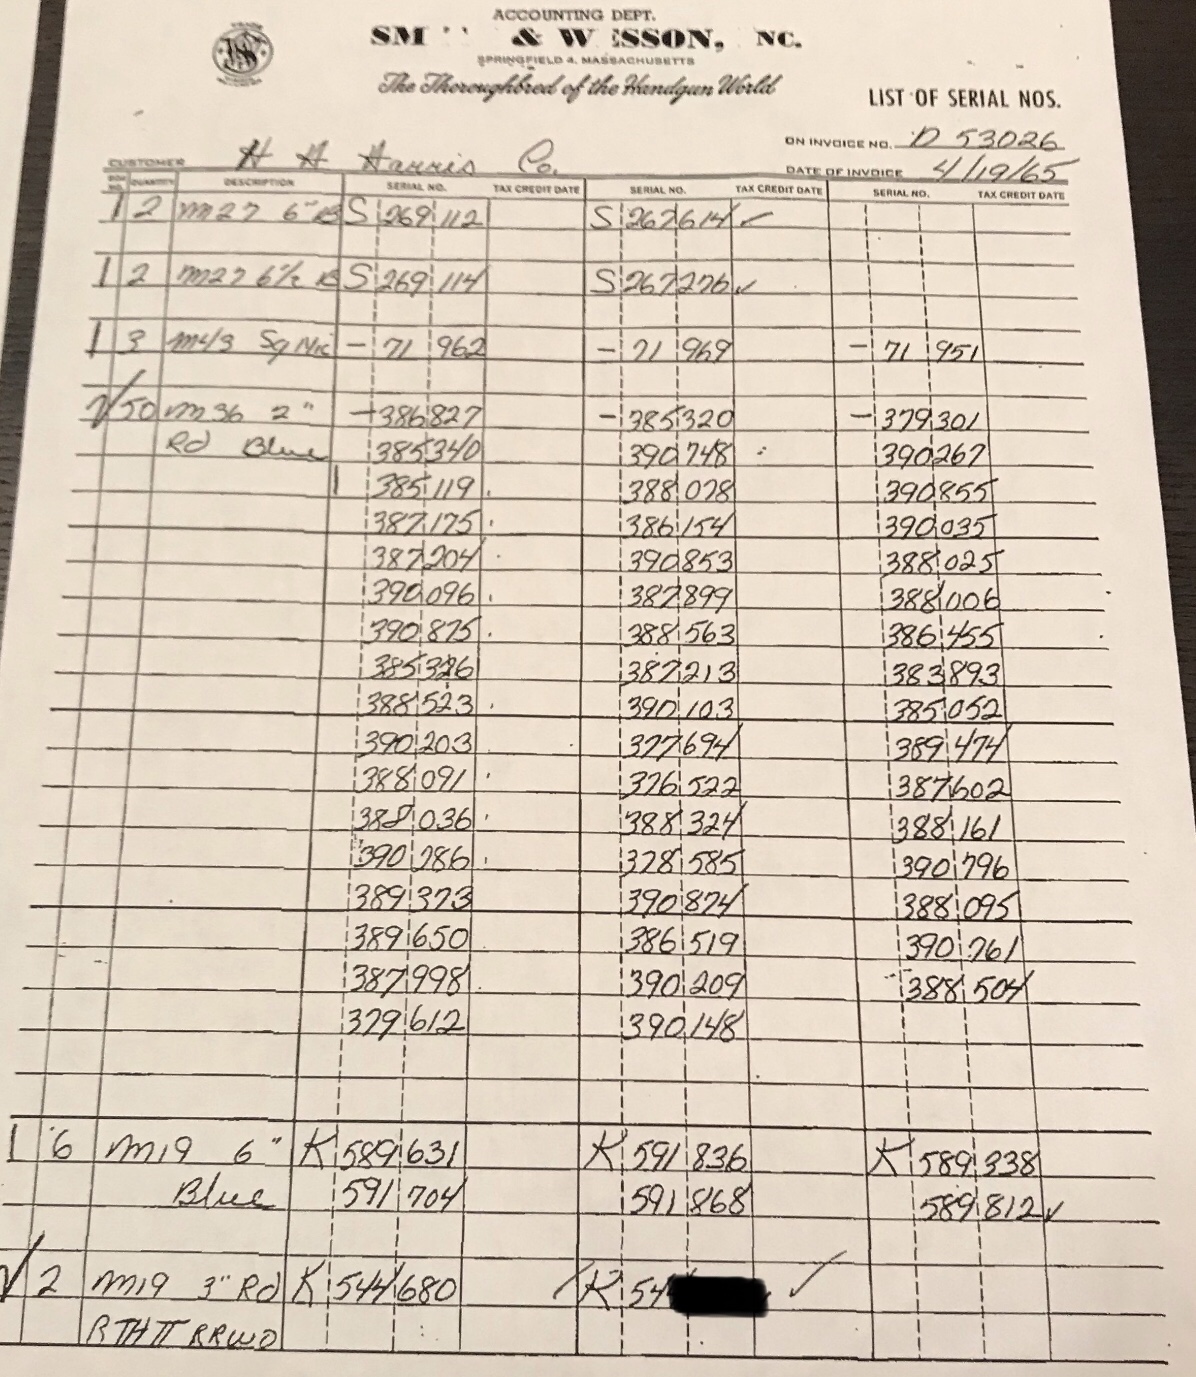 ACCOUNTING DEPT.
SM & W ESSON, NC.
SPRINGFIELD 4, MASSACHUSETTS
The Thoroughbred of the Handgun World
LIST OF SERIAL NOS.
ON INVOICE NO. D 53026
CUSTOMER H H Harris Co.
DATE OF INVOICE 4/19/65
BOX NO. QUANTITY DESCRIPTION SERIAL NO. TAX CREDIT DATE SERIAL NO. TAX CREDIT DATE SERIAL NO. TAX CREDIT DATE
1 2 M27 6" B S 269 112 S 267614 ✓
1 2 M27 6½ B S 269 114 S 267276 ✓
1 3 M43 Sq Nic - 71 962 - 71 969 - 71 951
50 M36 2" - 386827 - 385320 - 379301
Rd Blue 385340 390748 390267
385119 388028 390855
387175 386154 390035
387204 390853 388025
390096 387899 388006
390875 388563 386455
385326 387213 383893
388523 390103 385052
390203 377694 389474
388091 376522 387602
388036 388324 388161
390286 378585 390796
389373 390874 388095
389650 386519 390761
387998 390209 388504
379612 390148
1 6 M19 6" K 589631 K 591836 K 589338
Blue 591704 591868 589812 ✓
✓ 2 M19 3" Rd K 544680 K 54 ✓
RTHTT RRWO